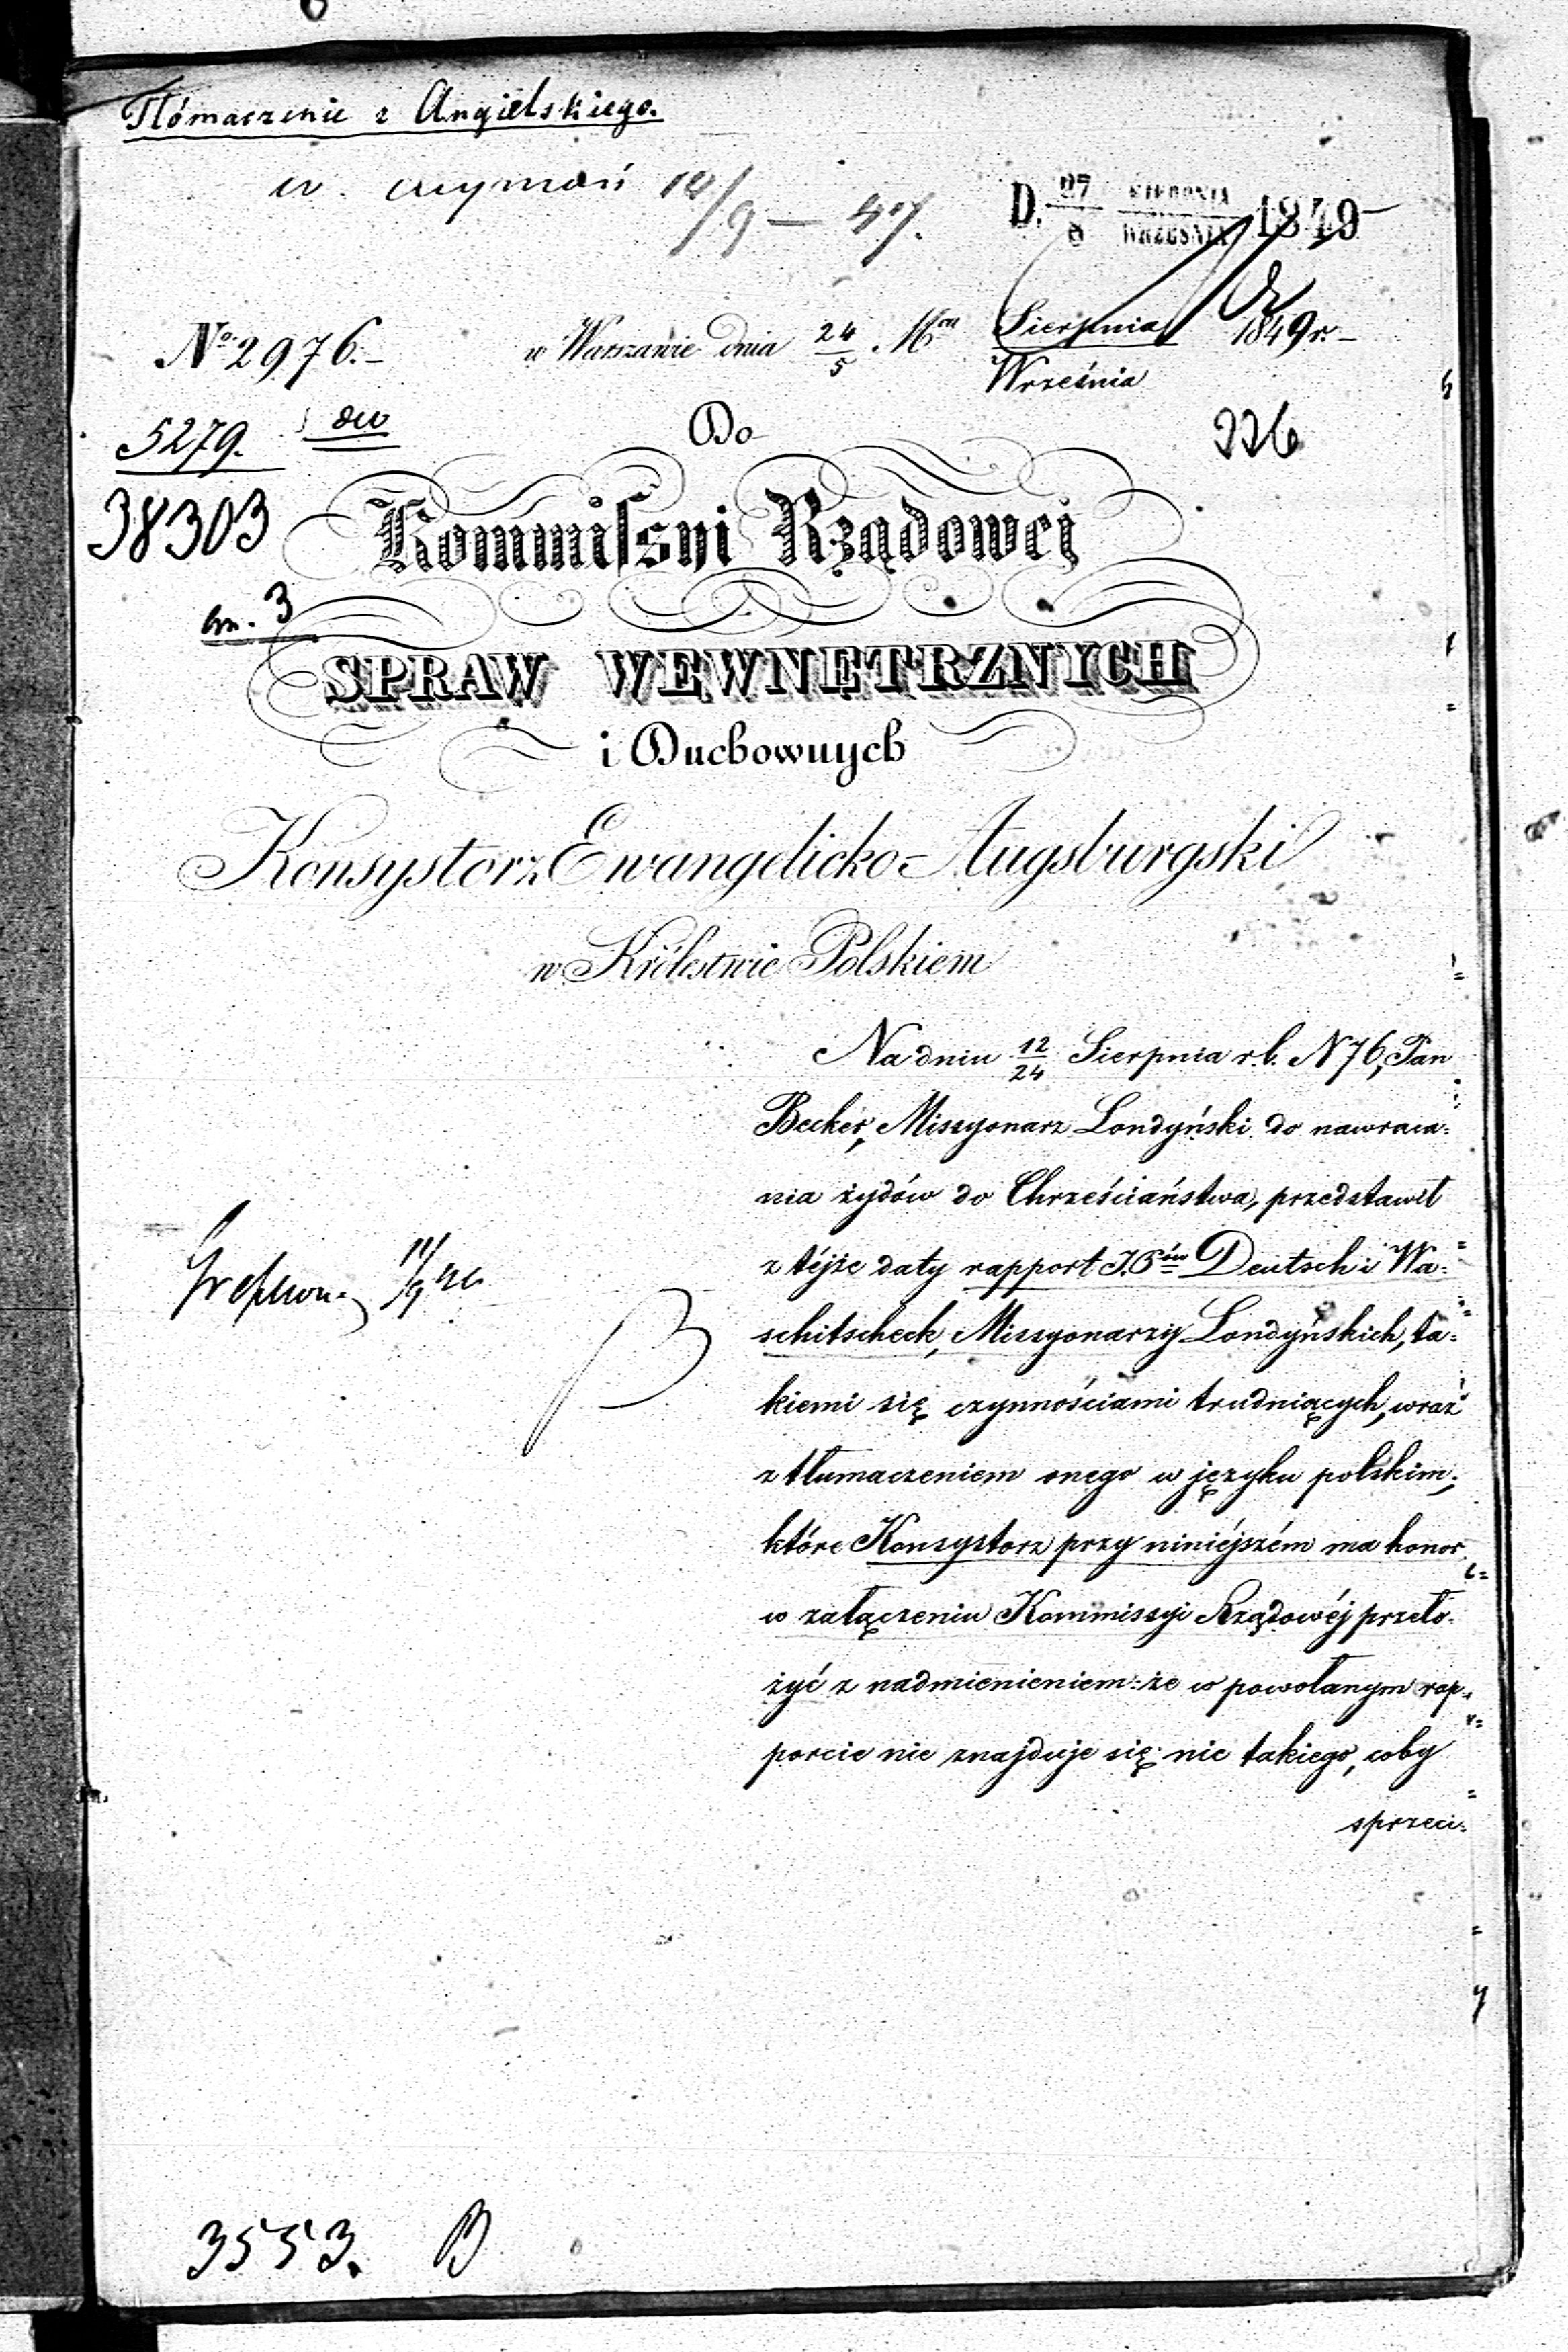 Tłómaczenie z Angielskiego.
D. 27/8 SIERPNIA/WRZEŚNIA 1849
No. 2976.- w Warszawie dnia 24/5 Mca Sierpnia/Września 1849 r.-
5279.
Do
226
38303
Kommissyi Rządowej
3
SPRAW WEWNĘTRZNYCH
i Duchownych
Konsystorz Ewangelicko-Augsburgski
w Królestwie Polskiem
Na dniu 12/24 Sierpnia r.b. N 76, Pan
Becker, Missyonarz Londyński do nawraca=
nia żydów do Chrześciaństwa, przedstawił
z téjże daty rapport J.Pów Deutsch i Wa=
schitscheck, Missyonarzy Londyńskich, ta=
kiemi się czynnościami trudniących, wraz
z tłumaczeniem onego w języku polskim;
które Konsystorz przy niniéjszém ma honor
w załączeniu Kommissyi Rządowéj przeło=
żyć z nadmienieniem: że w powołanym rap=
porcie nie znajduje się nic takiego, coby
sprzeci=
3553. B